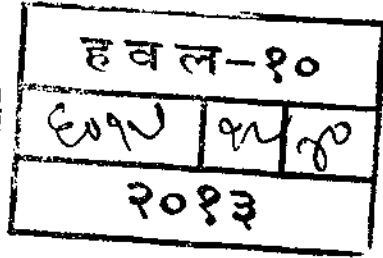 ह व ल-१०
६०१५ १५ ४०
२०१३